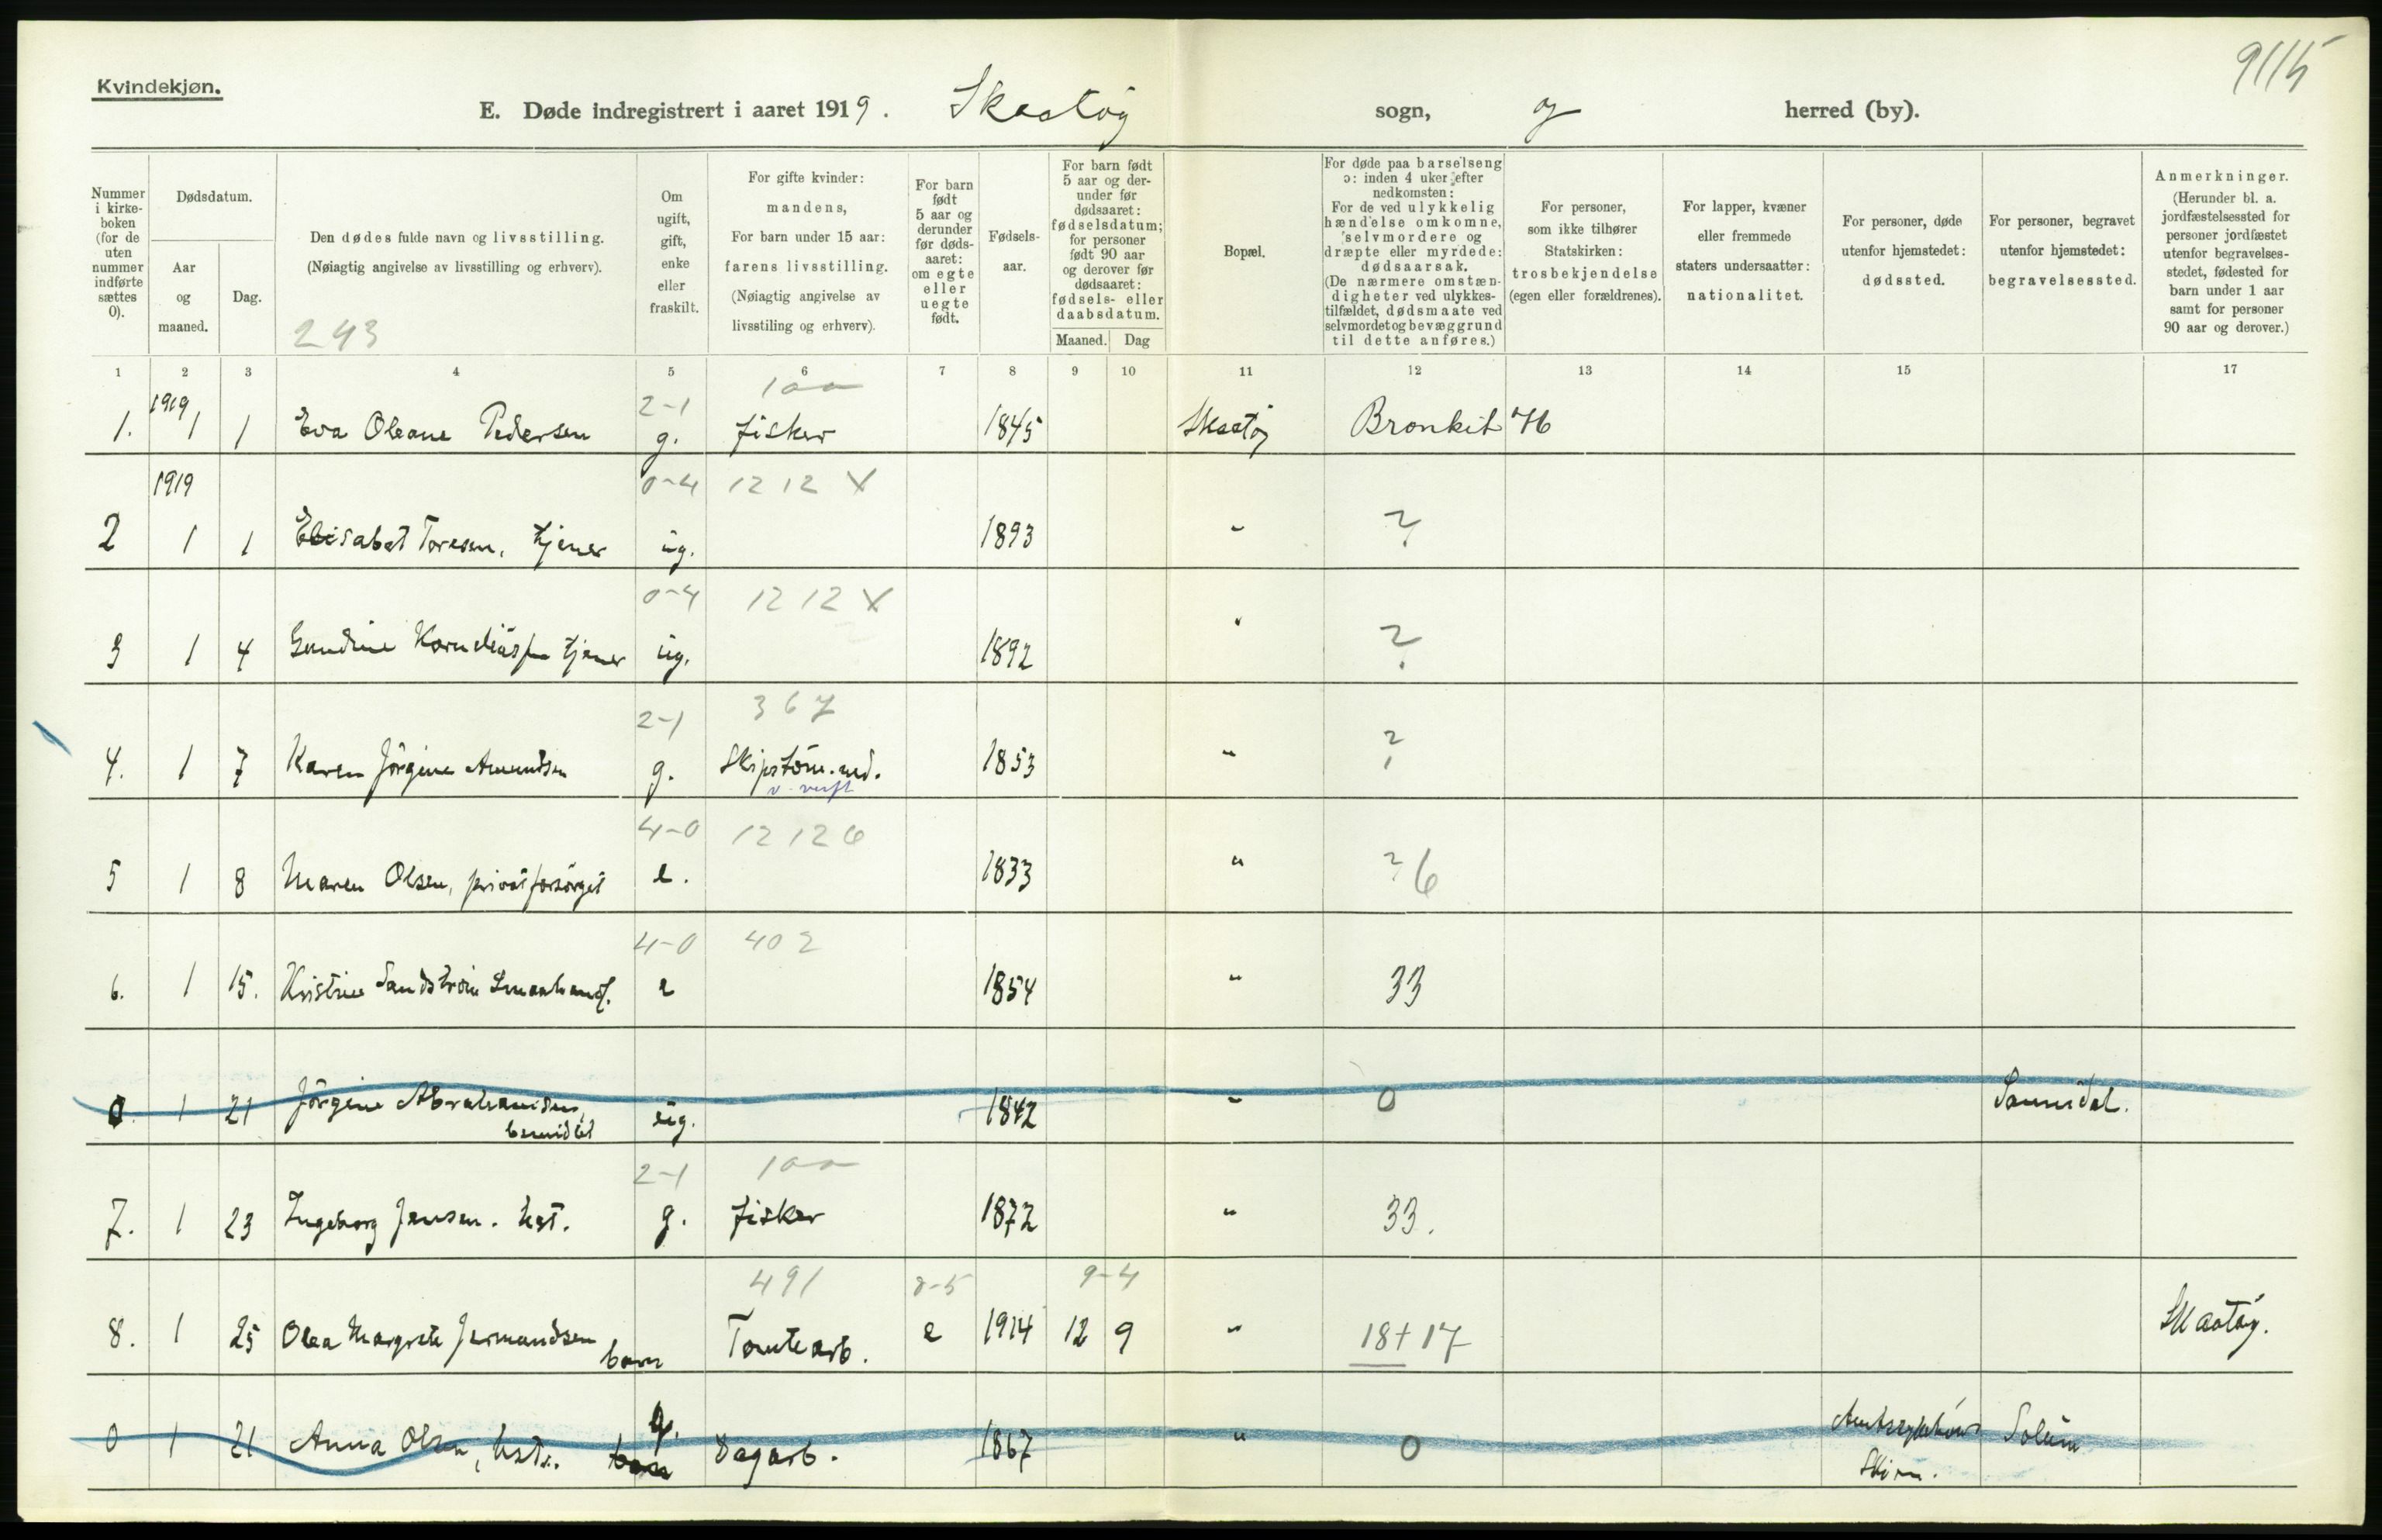 Kvindekjøn.
9115
E. Døde indregistrert i aaret 1919. Skaatøy sogn, og herred (by).
Nummer i kirkeboken (for de uten nummer indførte sættes 0).
Dødsdatum.
Aar og maaned.
Dag.
Den dødes fulde navn og livsstilling.
(Nøiagtig angivelse av livsstilling og erhverv).
243
Om ugift, gift, enke eller fraskilt.
For gifte kvinder: mandens,
For barn under 15 aar: farens livsstilling.
(Nøiagtig angivelse av livsstiling og erhverv).
For barn født 5 aar og derunder før dødsaaret: om egte eller uegte født.
Fødselsaar.
For barn født 5 aar og derunder før dødsaaret: fødselsdatum; for personer født 90 aar og derover før dødsaaret: fødsels- eller daabsdatum.
Maaned. Dag
Bopæl.
For døde paa barselseng ɔ: inden 4 uker efter nedkomsten:
For de ved ulykkelig hændelse omkomne, selvmordere og dræpte eller myrdede: dødsaarsak.
(De nærmere omstændigheter ved ulykkestilfældet, dødsmaate ved selvmordet og bevæggrund til dette anføres.)
For personer, som ikke tilhører Statskirken: trosbekjendelse (egen eller forældrenes).
For lapper, kvæner eller fremmede staters undersaatter: nationalitet.
For personer, døde utenfor hjemstedet: dødssted.
For personer, begravet utenfor hjemstedet: begravelsessted.
Anmerkninger.
(Herunder bl. a. jordfæstelsessted for personer jordfæstet utenfor begravelsesstedet, fødested for barn under 1 aar samt for personer 90 aar og derover.)
1 2 3 4 5 6 7 8 9 10 11 12 13 14 15 17
1919 2-1 100
1. 1 1 Eva Oleane Pedersen g. fisker 1845 Skaatøy Bronkit 46
1919 0-4 12 12 X
2 1 1 Elisabet Toresen, tjener ug. 1893 " ?
0-4 12 12 X
3 1 4 Gundine Korneliusen tjener ug. 1892 " ?
2-1 367
4. 1 7 Karen Jørgine Amundsen g. Skipstøm.md. 1853 " ?
v. verft
4-0 12 12 6
5 1 8 Maren Olsen, privat forsørget e. 1833 " ? 6
4-0 402
6. 1 15. Kristine Sandstrøm Smaahandl. e 1854 " 33
0. 1 21 Jörgine Abrahamsen, ug. 1842 " 0 Sannidal.
2-1 100
7. 1 23 Ingeborg Jensen. hst. g. fisker 1872 " 33.
491 8-5 9-4
8. 1 25 Olea Margrete Jermundsen barn Tomtearb. e 1914 12 9 " 18+17 Skaatøy.
0 1 21 Anna Olsen, hst. g. Dagarb. 1867 " 0 Amtssykehus Solum
Skien.